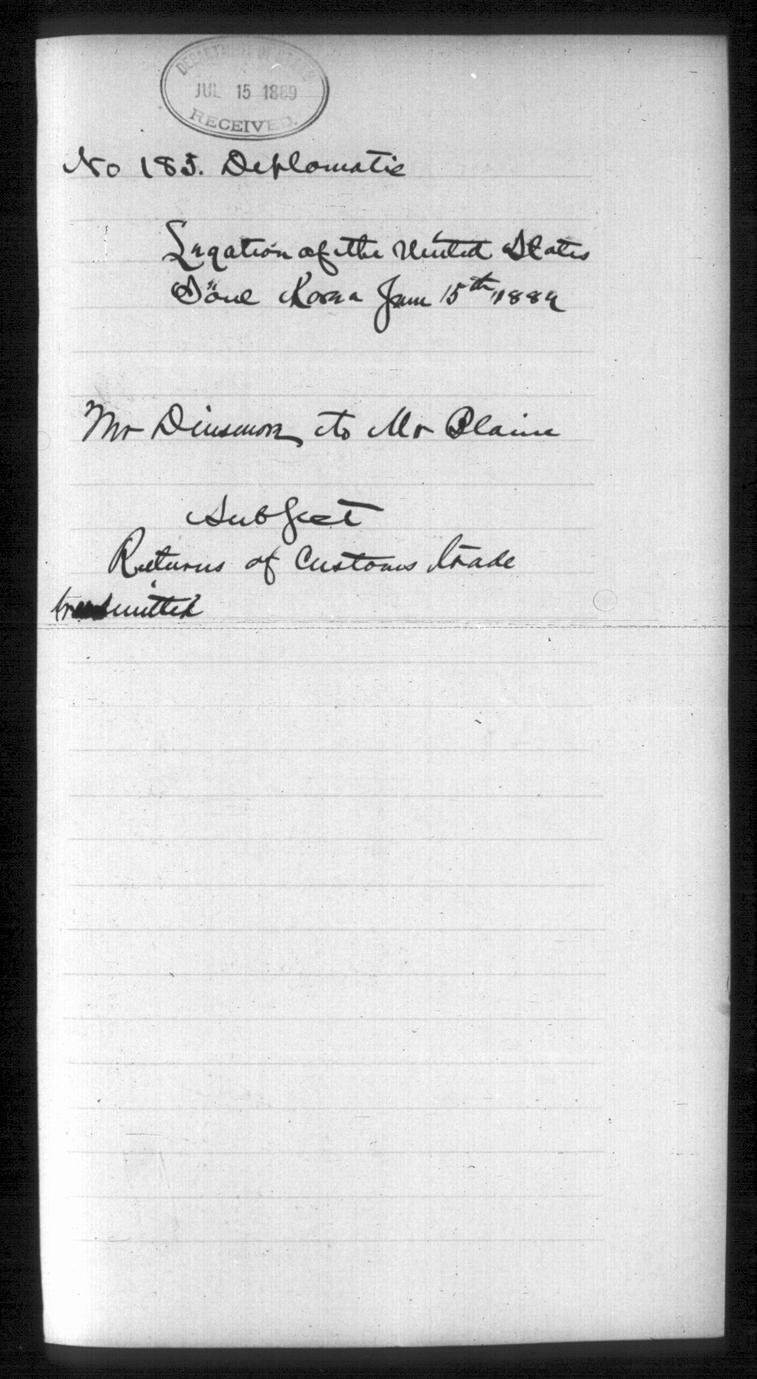 DEPARTMENT OF STATE
JUL 15 1889
RECEIVED.
No 183. Deplomatic
Legation of the United States
Söul Korea June 15th 1889
Mr Dinsmore to Mr Blaine
Subject
Returns of Customs trade
transmitted